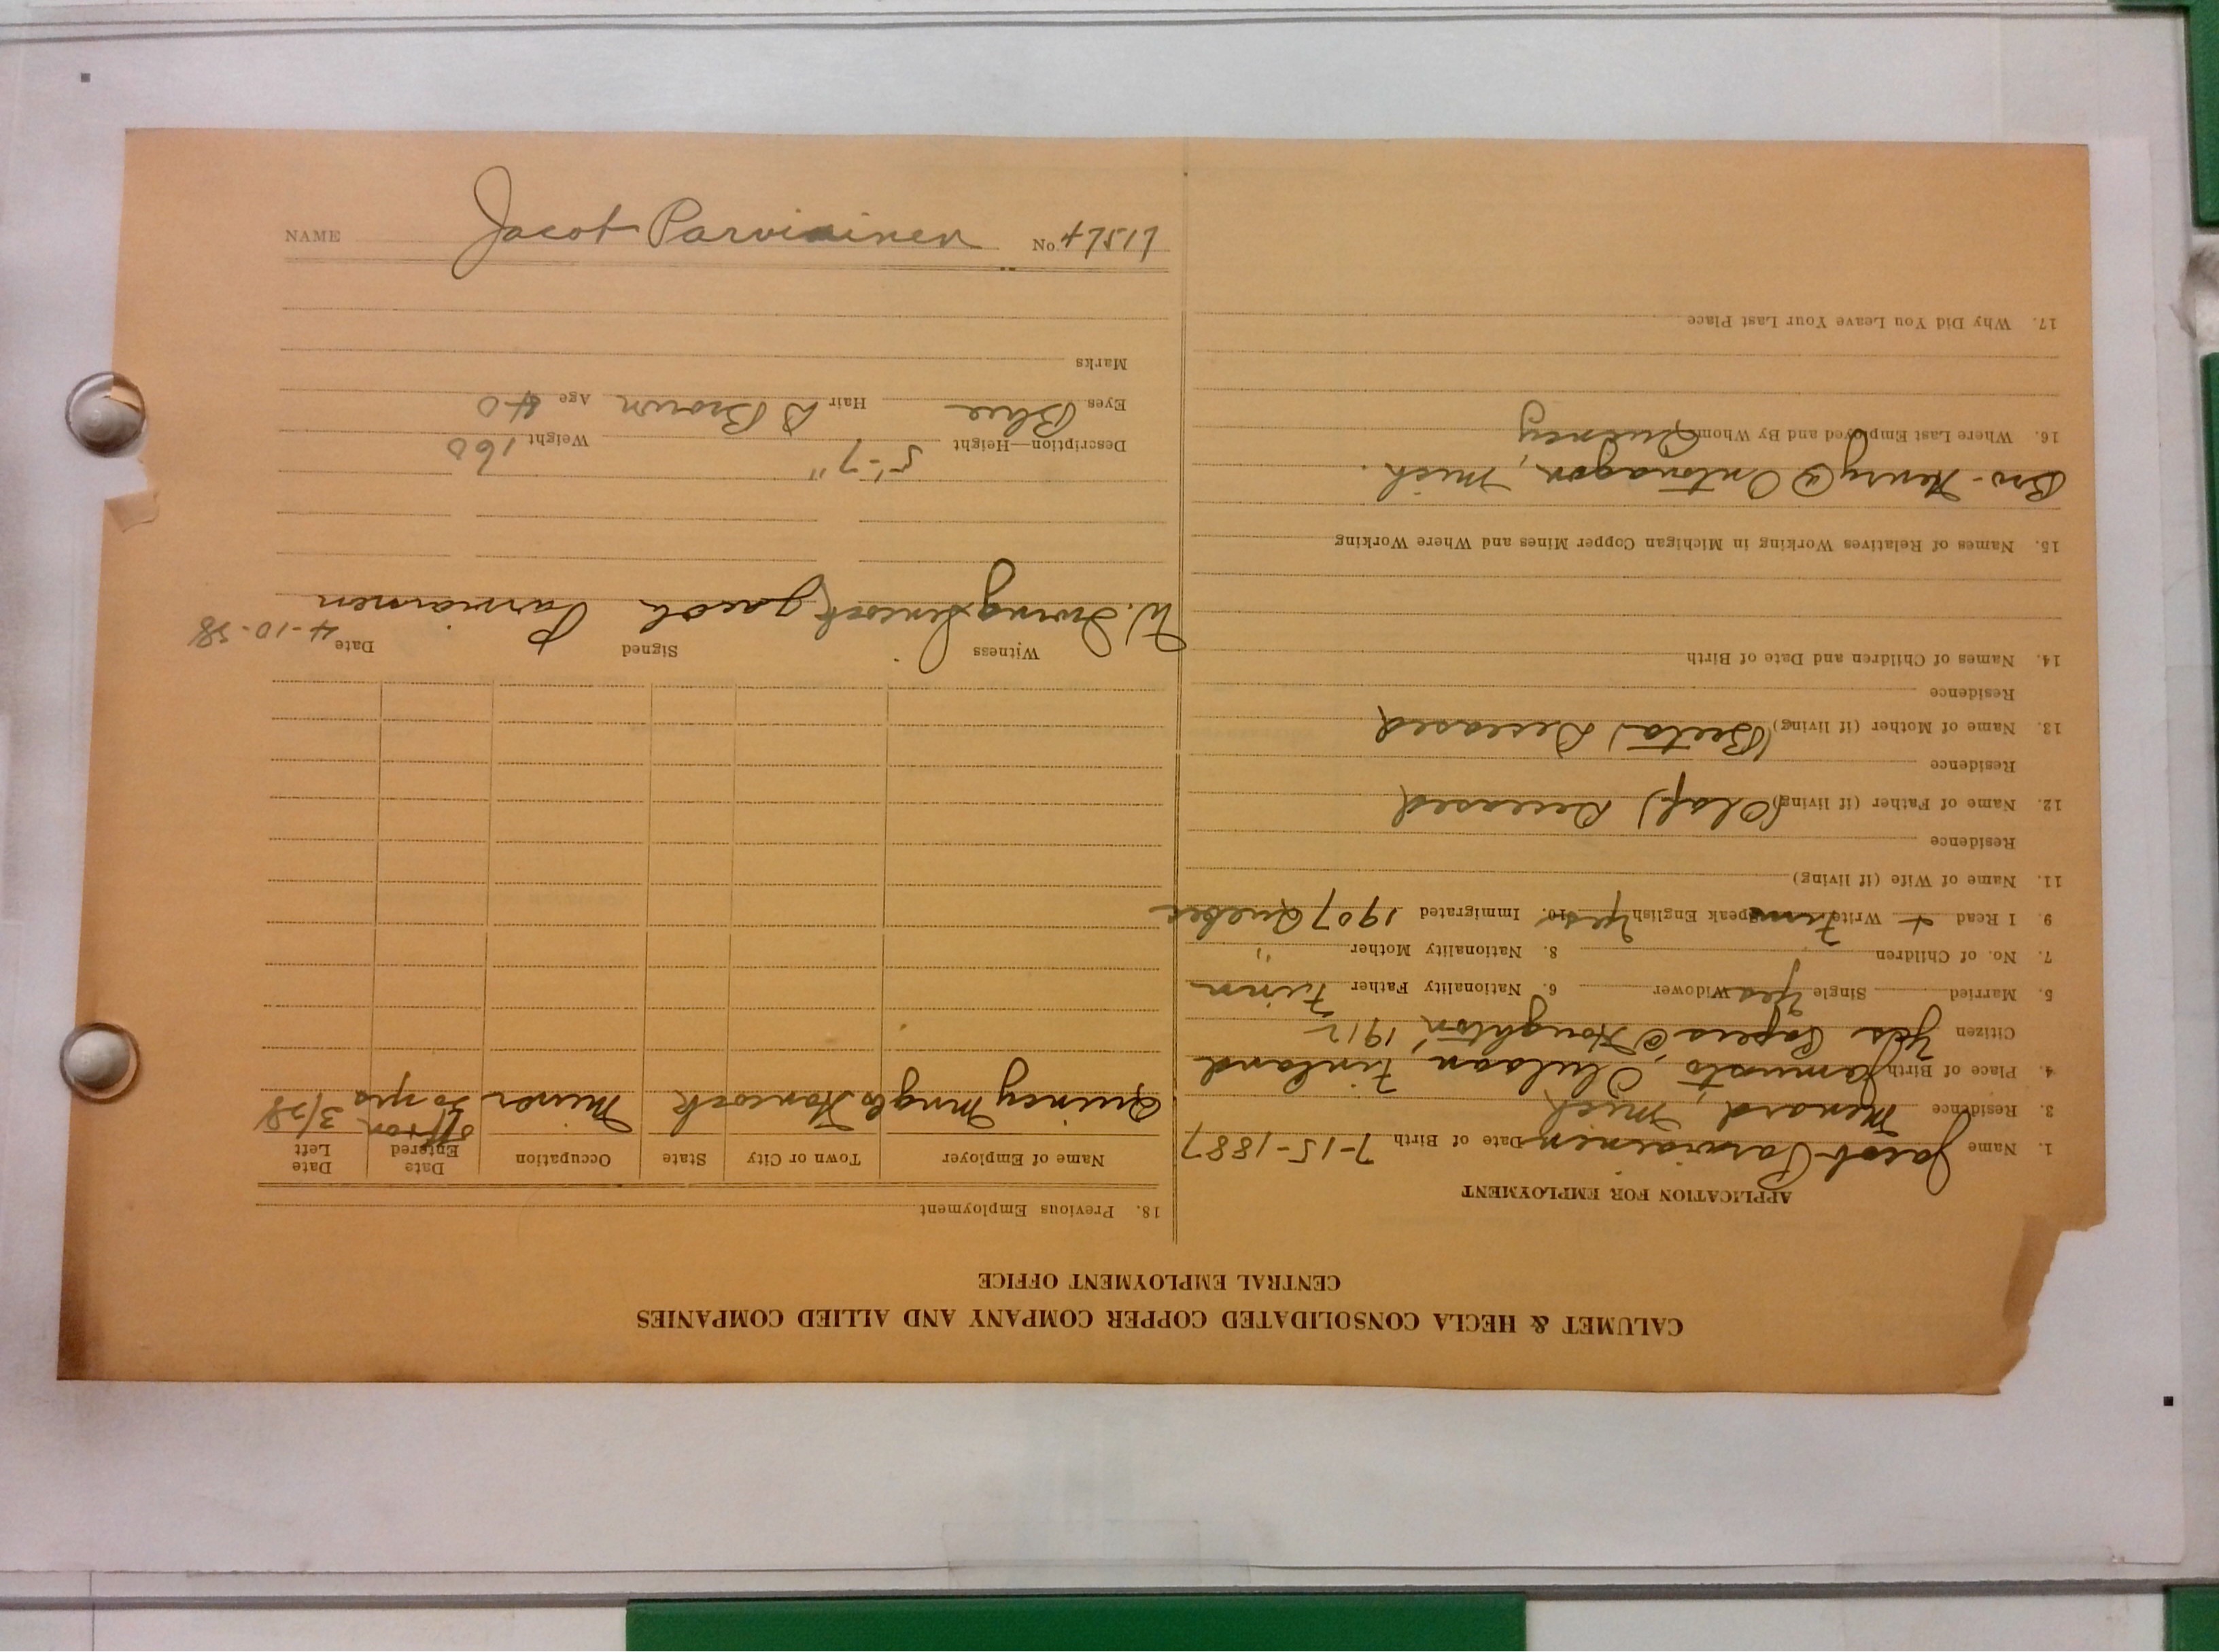 CALUMET & HECLA CONSOLIDATED COPPER COMPANY AND ALLIED COMPANIES
CENTRAL EMPLOYMENT OFFICE
APPLICATION FOR EMPLOYMENT
1. Name Jacob Parviainen Date of Birth 7-15-1887
3. Residence Menard, Mich
4. Place of Birth Finland
Citizen Yes Papers @ Houghton, 1912
5. Married Single Yes Widower 6. Nationality Father Finn
7. No. of Children 8. Nationality Mother "
9. I Read + Write Finn Speak English Yes 10. Immigrated 1907 Quebec
11. Name of Wife (if living)
Residence
12. Name of Father (if living) (Olaf) Deceased
Residence
13. Name of Mother (if living) (Beeta) Deceased
Residence
14. Names of Children and Date of Birth
15. Names of Relatives Working in Michigan Copper Mines and Where Working
Bro- Henry @ Ontonagon, Mich.
16. Where Last Employed and By Whom Quincy
17. Why Did You Leave Your Last Place
18. Previous Employment
Name of Employer Town or City State Occupation Date Entered Date Left
Quincy Mng Co Hancock Miner off + on 20 yrs 3/28
Witness Signed Date 4-10-28
W. Irving Jacob Parviainen
Description—Height 5'-7" Weight 160
Eyes Blue Hair D Brown Age 40
Marks
NAME Jacob Parviainen No. 47517